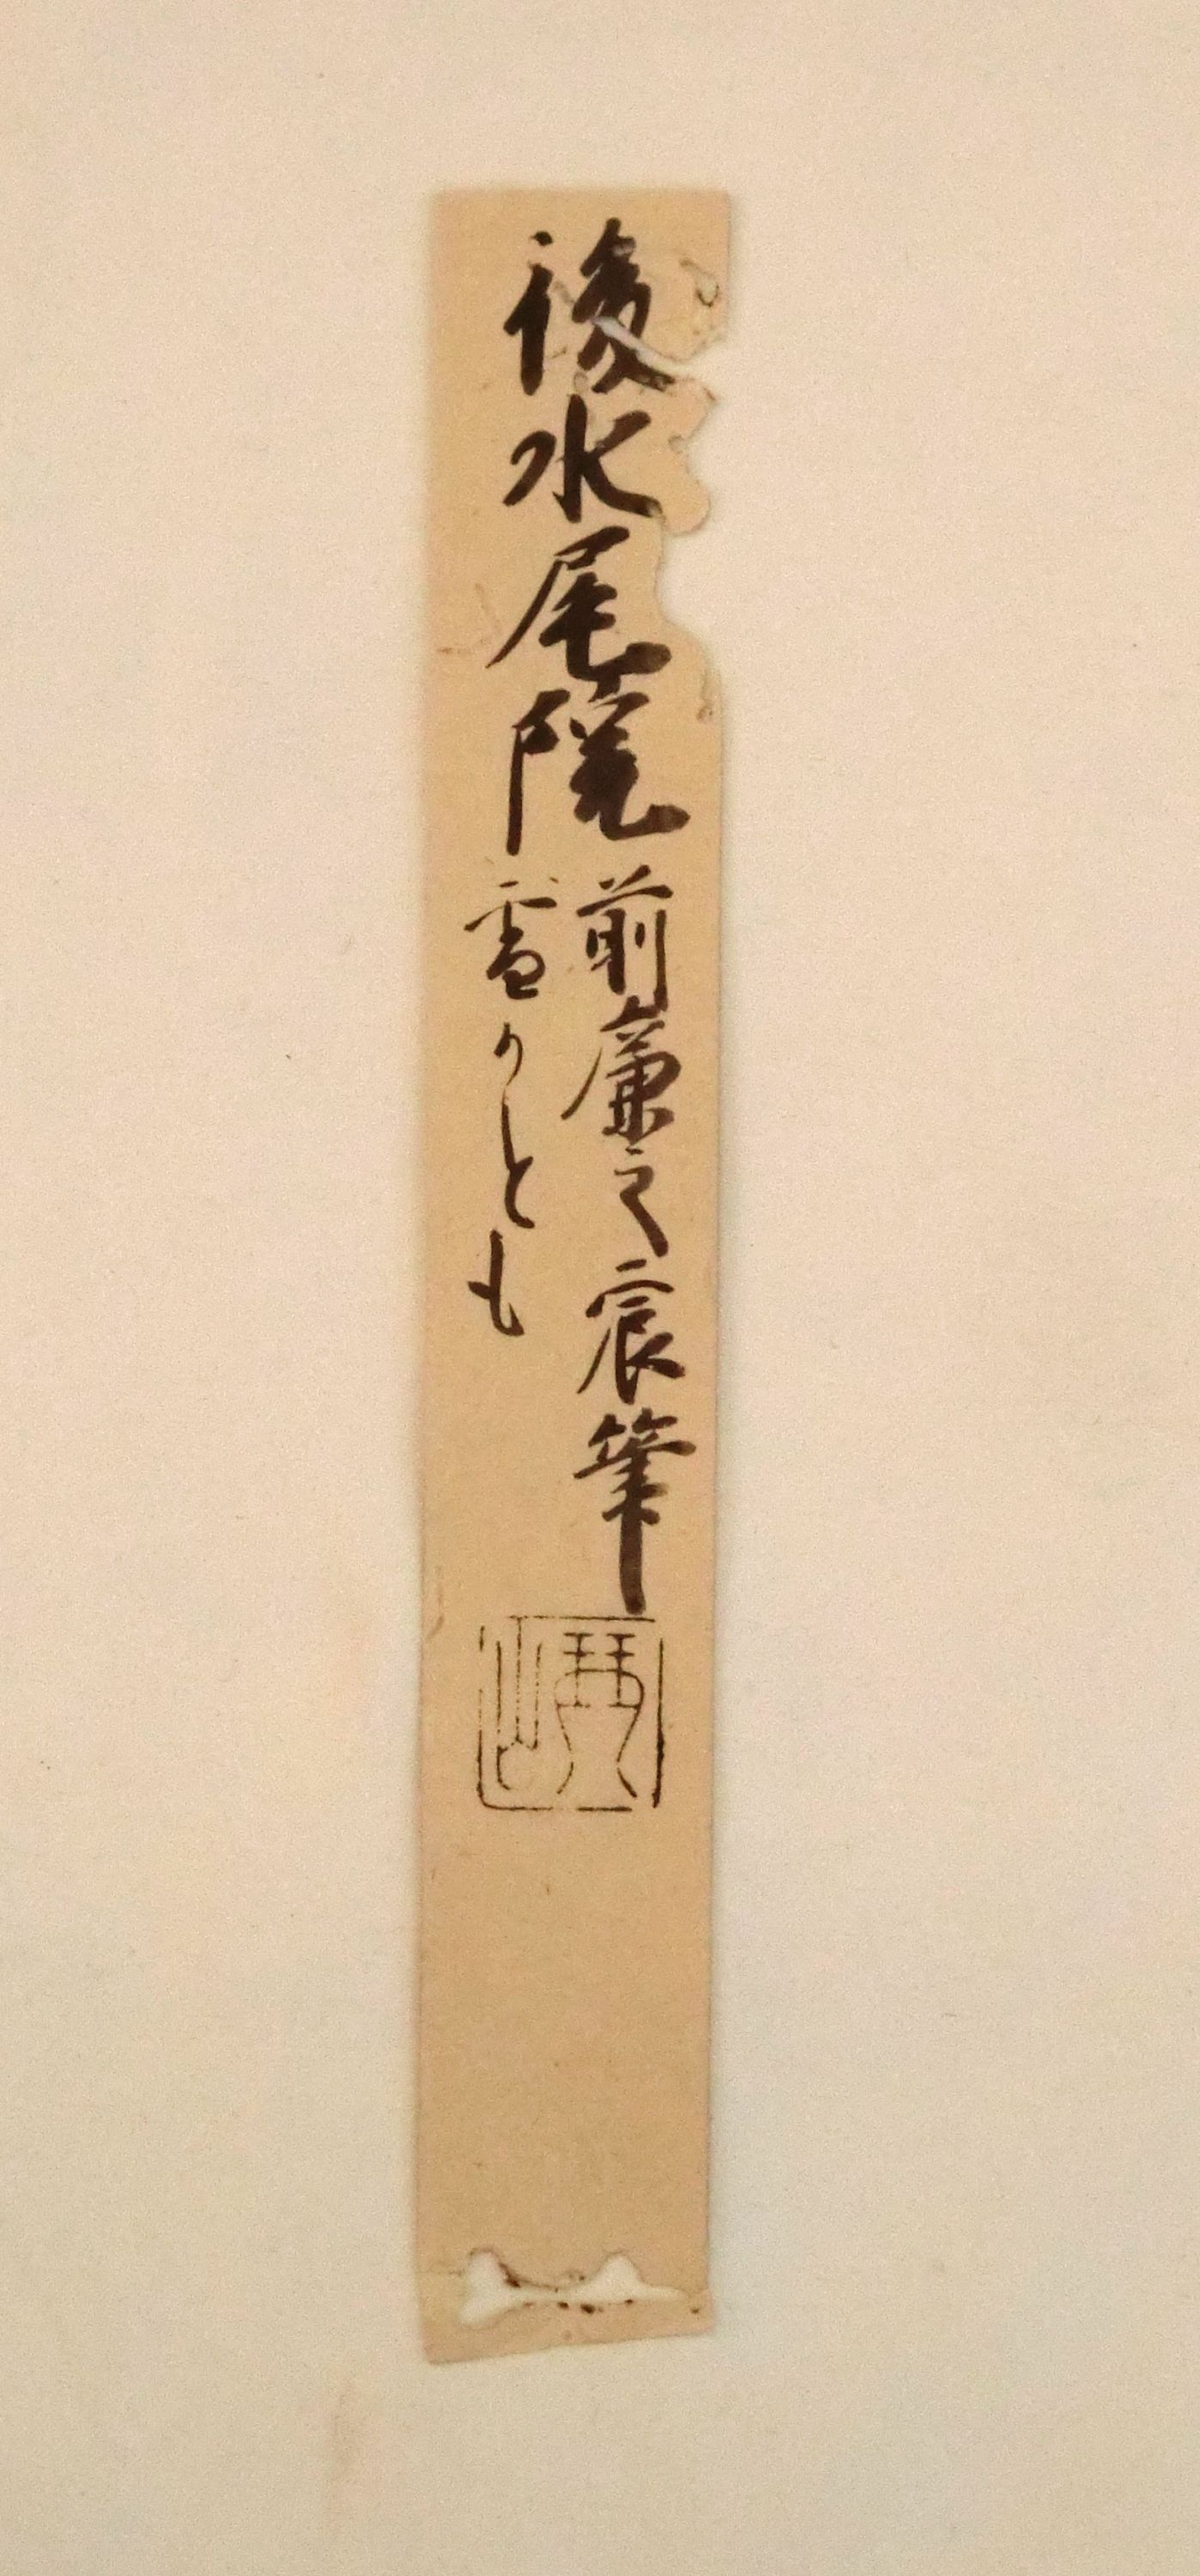 後水尾院
前廉之宸筆
雪かとも
琴山